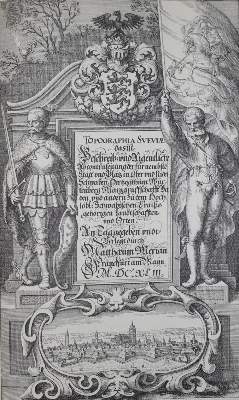 TOPOGRAPHIA SVEVIÆ
das ist
Beschreib: und Aigentliche
Abcontrafeitung der fürnembste
Stätt und Plätz in Ober und Nider
Schwaben, Hertzogthum Würtenberg Marggraffschafft Baden
und andern zu dem Hoch
löbl: Schwabischen Craiße
gehörigen Landtschafften
und Orten.
An Tag gegeben undt
Verlegt durch
Matthæum Merian
Franckfurt am Mayn
M.DC.XLIII